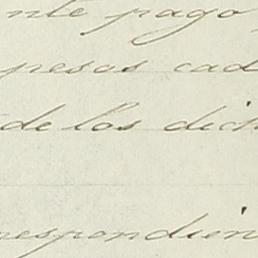 nte pago
pesos cad
de los dich
respondien